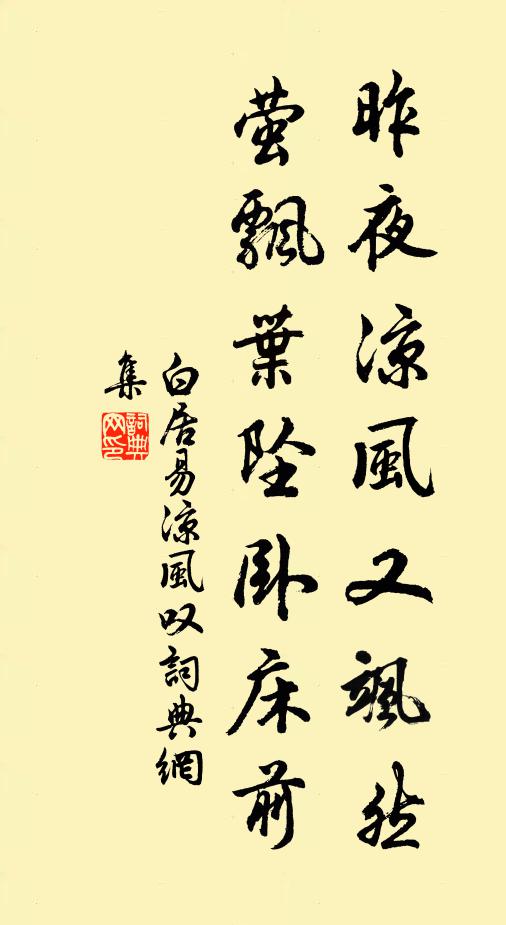 昨夜涼風又颯然
螢飄葉坠卧床前
白居易涼風叹詞典網
集
詞典網印